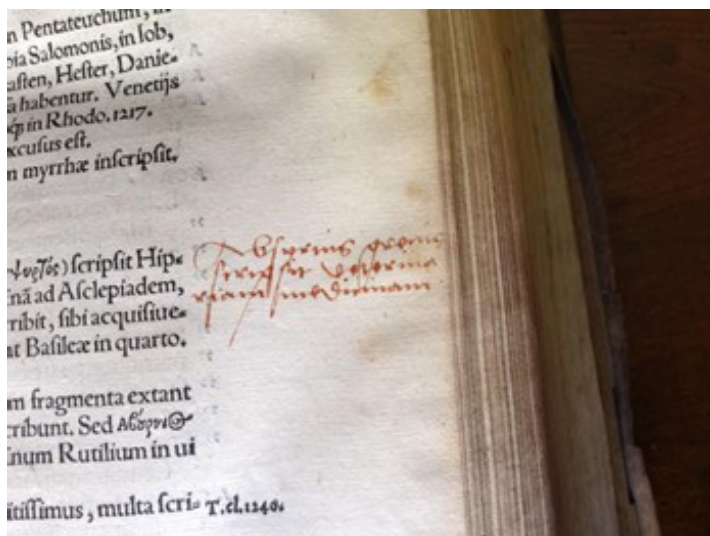 n Pentateuchum, in
pia Salomonis, in Iob,
aſten, Heſter, Danie-
ā habentur. Venetijs
in Rhodo. 1217.
xcuſus eſt.
n myrrhæ inſcripſit.
ſcripſit Hip-
nā ad Aſclepiadem,
ribit, ſibi acquiſiue-
nt Baſileæ in quarto.
Abſyrtus grecus
ſcripſit veterina
riam medicinam
m fragmenta extant
cribunt. Sed
inum Rutilium in ui
itiſſimus, multa ſcri- T.cl.1240.